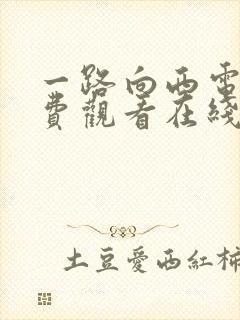 一路向西電
費觀看在綫
土豆愛西紅柿